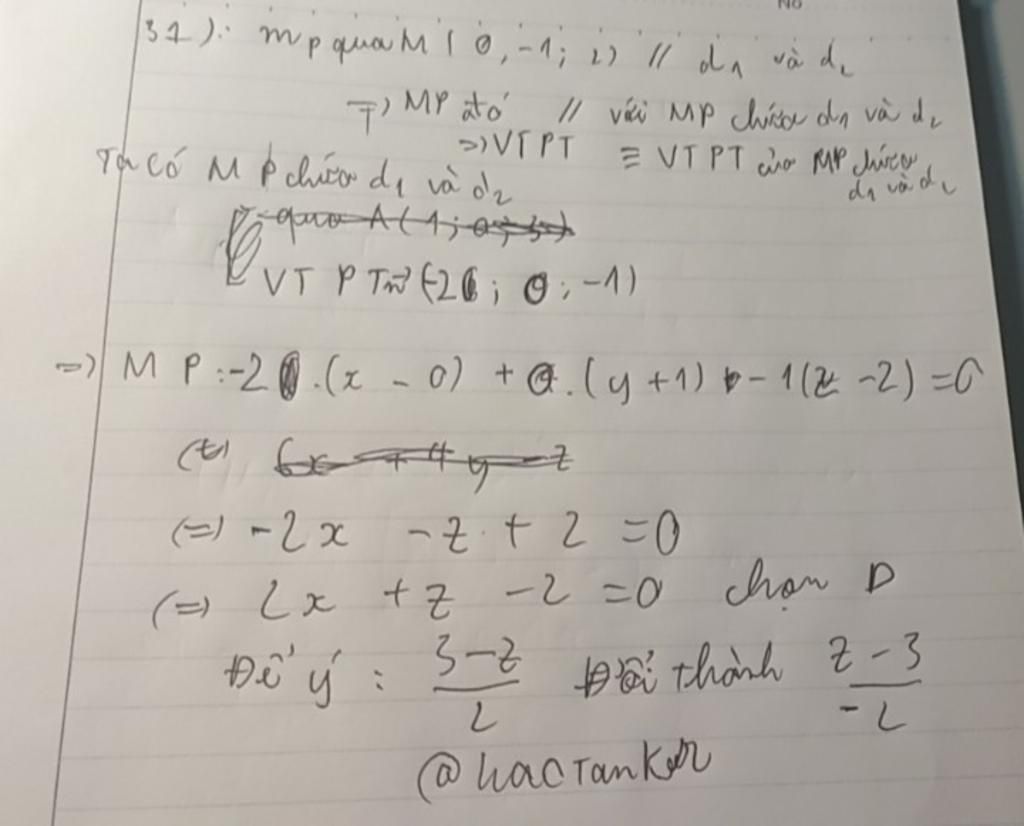 No
31): mp qua M (0, -1; 2) // d1 và d2
=) MP đó // với MP chứa d1 và d2
=) VTPT ≡ VTPT của MP chứa d1 và d2
Ta có MP chứa d1 và d2
qua A(1; 0; 3)
VTPT n (-2; 0; -1)
=) MP: -2.(x - 0) + 0.(y + 1) - 1(z - 2) = 0
(=) 6x + 4y - z
(=) -2x - z + 2 = 0
(=) 2x + z - 2 = 0 chọn D
Để ý: 3-z/2 Đổi thành z-3/-2